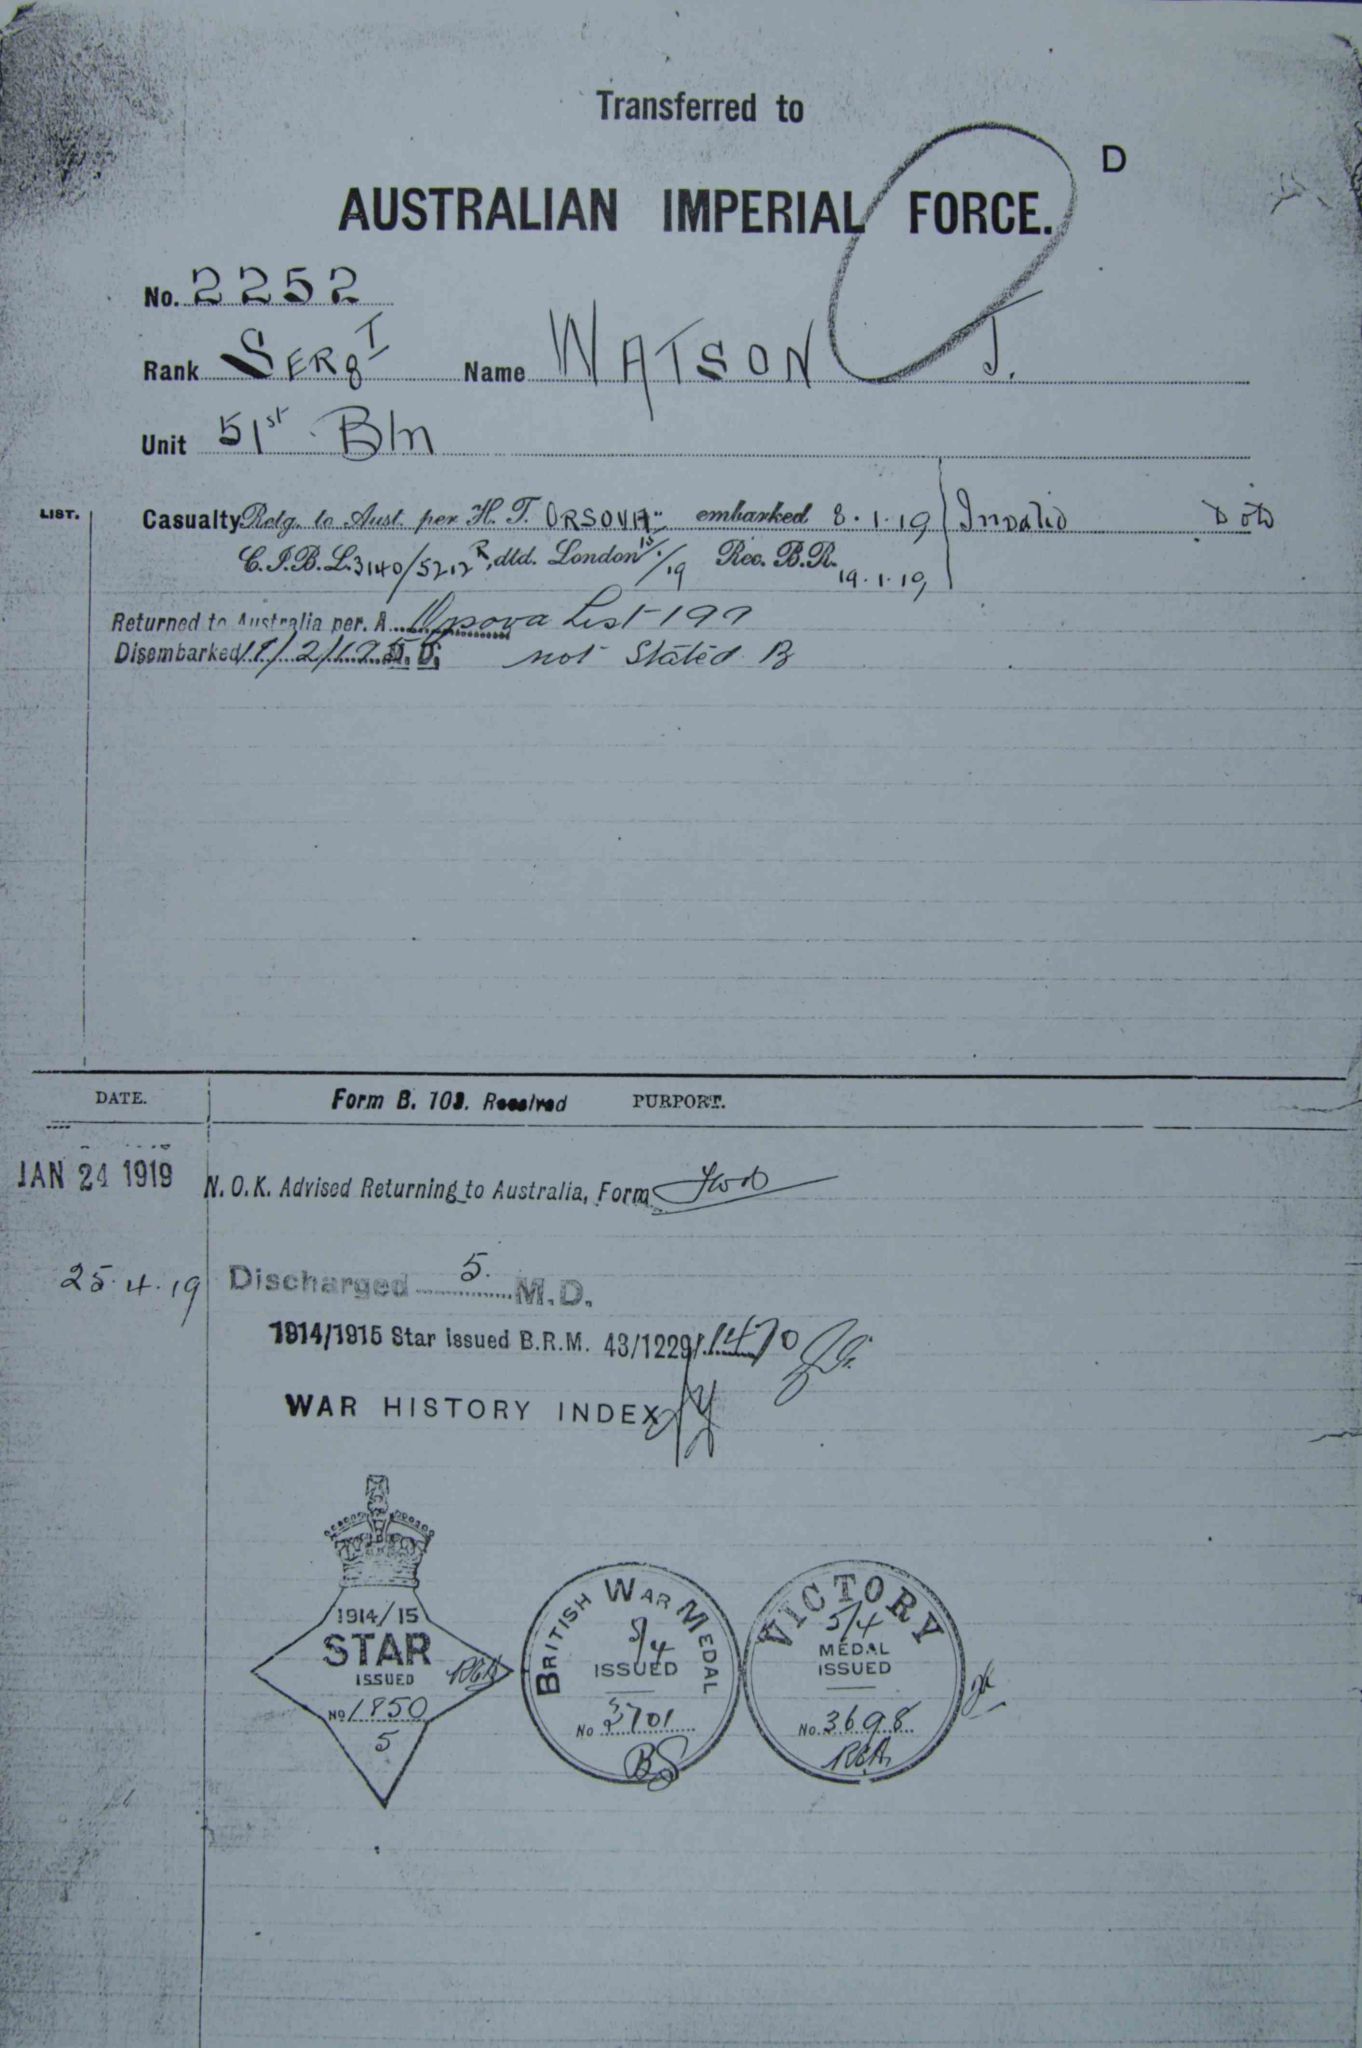 Transferred to
D
AUSTRALIAN IMPERIAL FORCE.
No. 2252
Rank SERGT Name WATSON J.
Unit 51st Bln
LIST.
Casualty Retg. to Aust. per H. T. ORSOVA" embarked 8.1.19 Invalid
C.I.B.L. 3140/5212 R, dtd. London /19 Rec. B.R. 19.1.19
Returned to Australia per. A Orsova List 199
Disembarked 2/19 5. D. not Stated B
DATE. Form B. 103. Received PURPORT.
JAN 24 1919 N. O. K. Advised Returning to Australia, Form
25.4.19 Discharged 5. M.D.
1914/1915 Star issued B.R.M. 43/1229/1470
WAR HISTORY INDEX
1914/15
STAR
ISSUED
No 1850
5
BRITISH WAR MEDAL
5/4
ISSUED
No 3701
BS
VICTORY
5/4
MEDAL
ISSUED
No. 3698